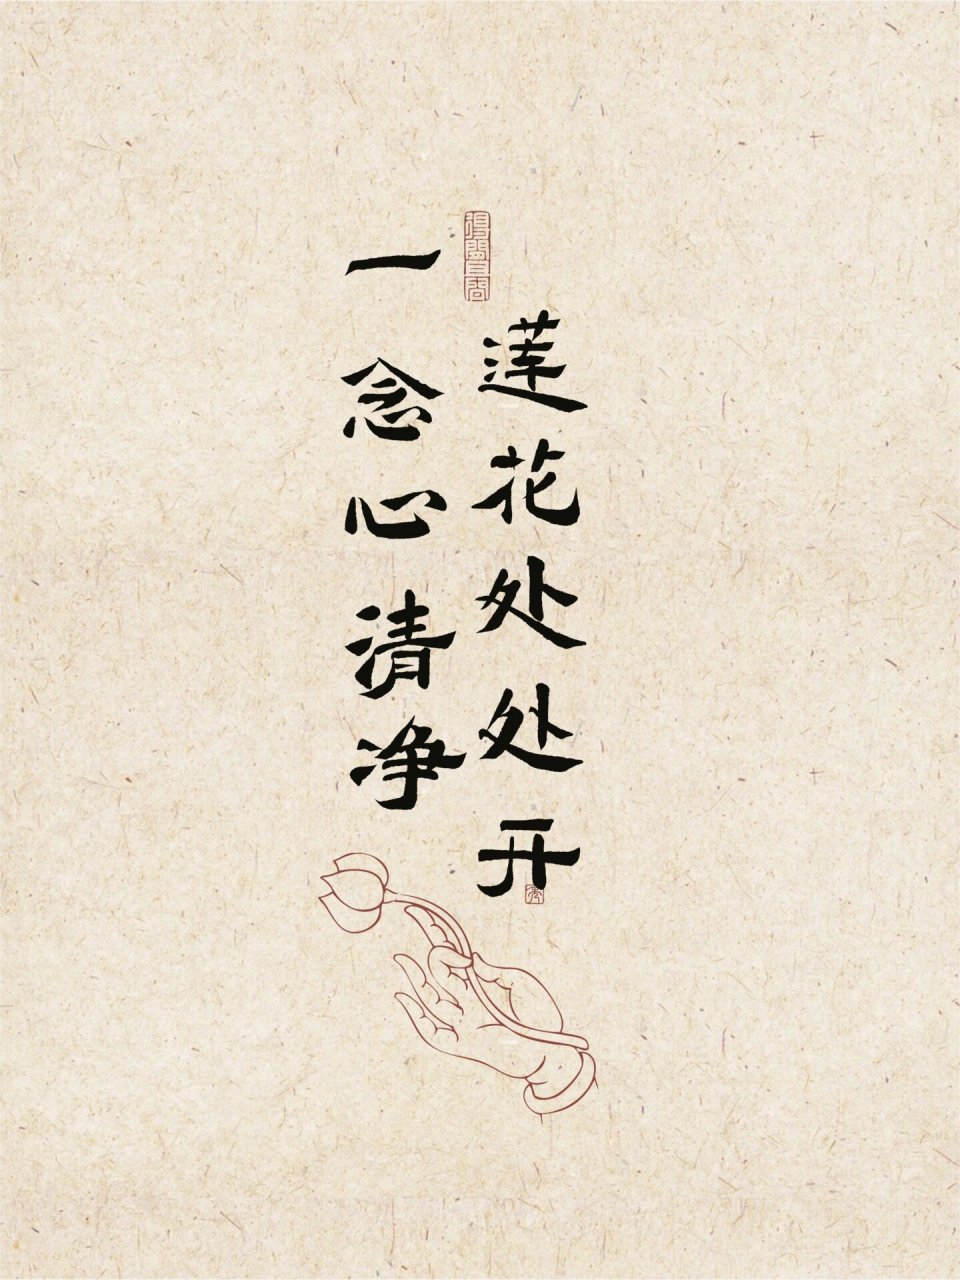 一念心清净
莲花处处开